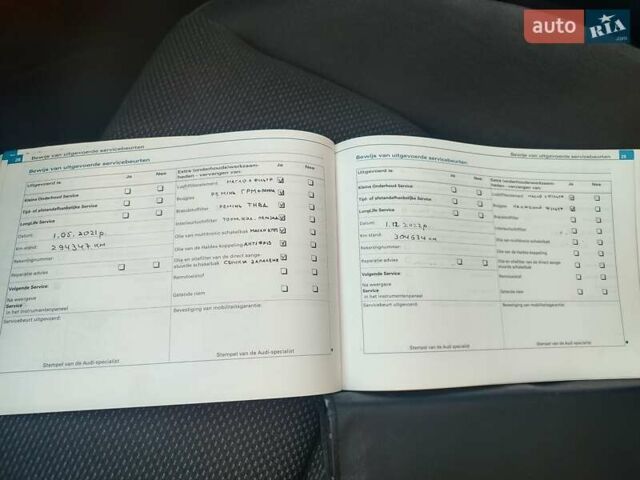 auto RIA.com
28
Bewijs van uitgevoerde servicebeurten
Bewijs van uitgevoerde servicebeurten
Uitgevoerd is:
Ja Nee
Kleine Onderhoud Service
Tijd- of afstandafhankelijke Service
LongLife Service
Datum:
1.05.2021р.
Km-stand:
294347 км
Rekeningnummer:
Reparatie-advies
Volgende Service:
Na weergave
Service
in het instrumentenpaneel
Servicebeurt uitgevoerd:
Stempel van de Audi-specialist
Extra (onderhouds)werkzaam-
heden - vervangen van:
Ja Nee
Luchtfilterelement масло+фільтр
Bougies ремінь ГРМ
Brandstoffilter ремінь ТНВД
Interieurluchtfilter
Olie van multitronic schakelbak
Olie van de Haldex-koppeling антифріз
Olie en oliefilter van de direct aange-
stuurde schakelbak свічки
Remvloeistof
Getande riem
Bevestiging van mobiliteitsgarantie:
Stempel van de Audi-specialist
Bewijs van uitgevoerde servicebeurten
Bewijs van uitgevoerde servicebeurten
29
Uitgevoerd is:
Ja Nee
Kleine Onderhoud Service
Tijd- of afstandafhankelijke Service
LongLife Service
Datum:
1.12.2021р.
Km-stand:
304634 км
Rekeningnummer:
Reparatie-advies
Volgende Service:
Na weergave
Service
in het instrumentenpaneel
Servicebeurt uitgevoerd:
Stempel van de Audi-specialist
Extra (onderhouds)werkzaam-
heden - vervangen van:
Ja Nee
Luchtfilterelement масло+фільтр
Bougies фільтр
Brandstoffilter
Interieurluchtfilter
Olie van multitronic schakelbak
Olie van de Haldex-koppeling
Olie en oliefilter van de direct aange-
stuurde schakelbak
Remvloeistof
Getande riem
Bevestiging van mobiliteitsgarantie:
Stempel van de Audi-specialist